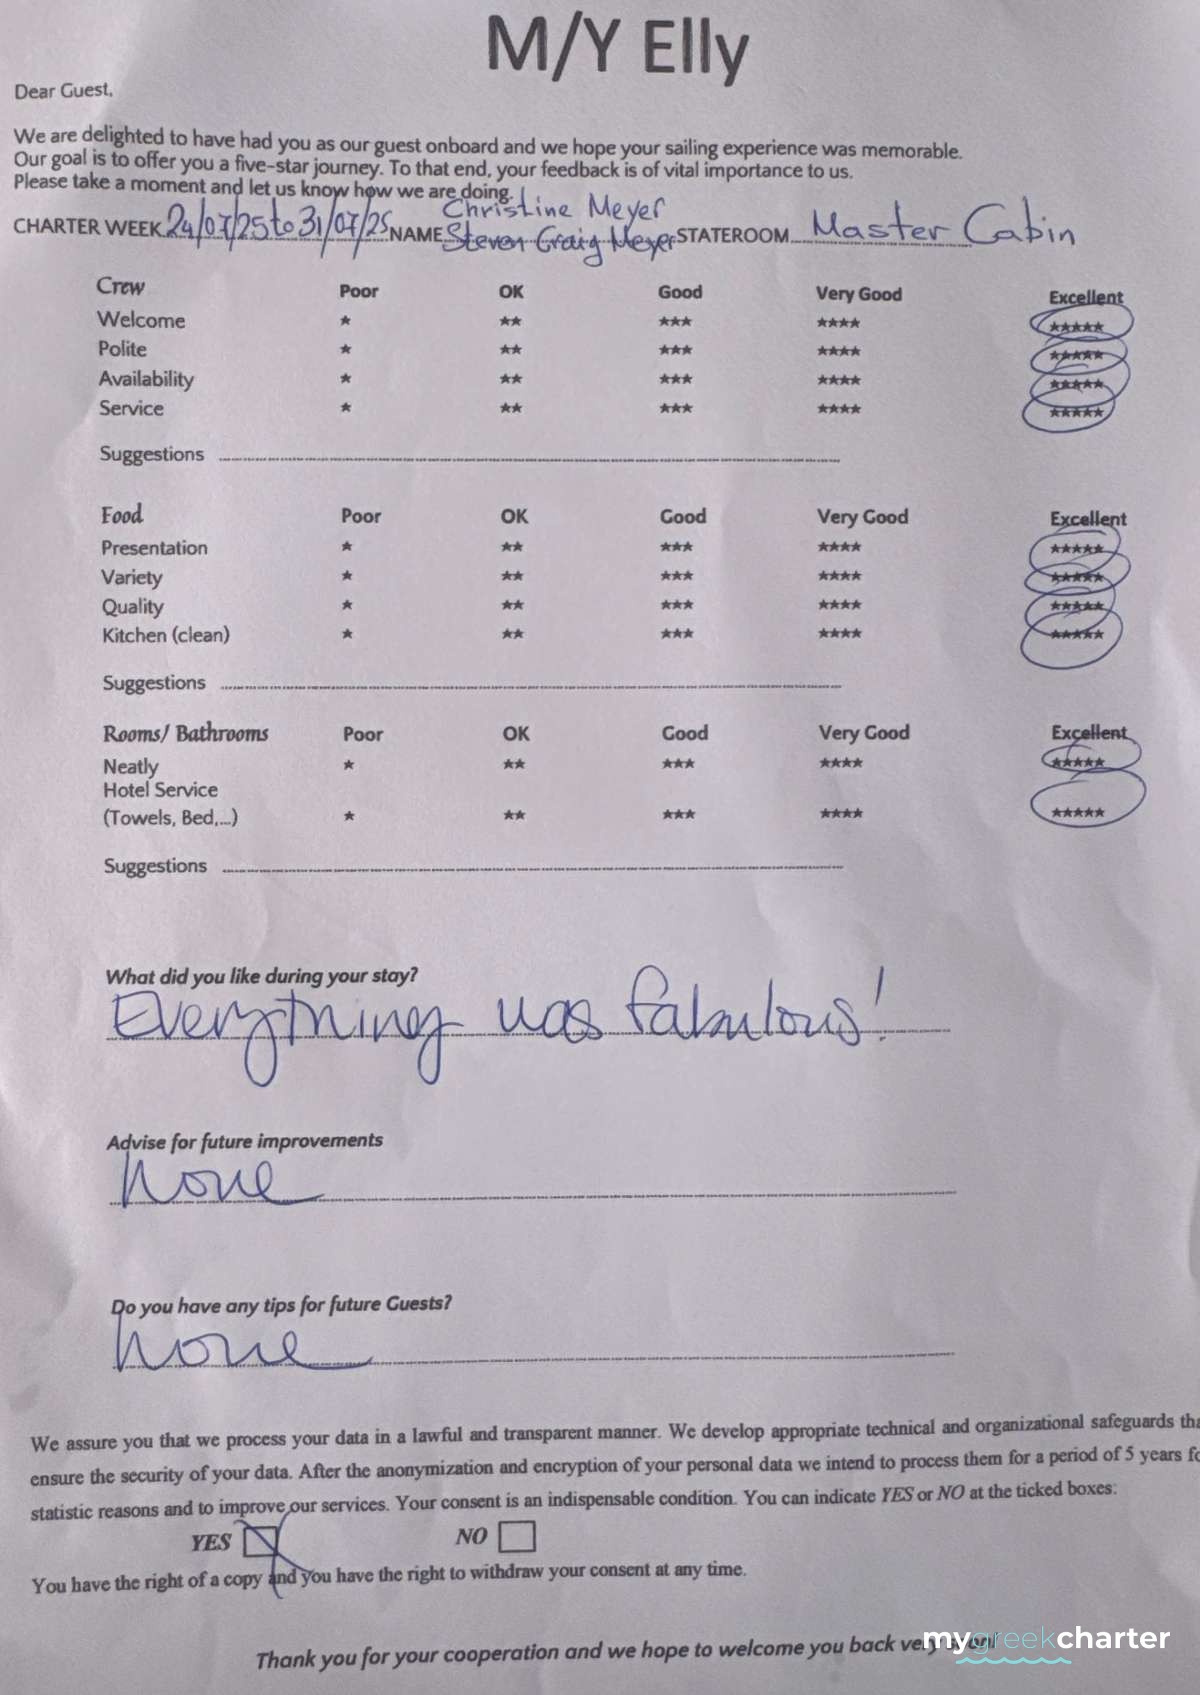 M/Y Elly
Dear Guest,
We are delighted to have had you as our guest onboard and we hope your sailing experience was memorable.
Our goal is to offer you a five-star journey. To that end, your feedback is of vital importance to us.
Please take a moment and let us know how we are doing.
Christine Meyer
CHARTER WEEK 24/07/25 to 31/07/25 NAME Steven Craig Meyer STATEROOM Master Cabin
Crew Poor OK Good Very Good Excellent
Welcome ★ ★★ ★★★ ★★★★ ★★★★★
Polite ★ ★★ ★★★ ★★★★ ★★★★★
Availability ★ ★★ ★★★ ★★★★ ★★★★★
Service ★ ★★ ★★★ ★★★★ ★★★★★
Suggestions
Food Poor OK Good Very Good Excellent
Presentation ★ ★★ ★★★ ★★★★ ★★★★★
Variety ★ ★★ ★★★ ★★★★ ★★★★★
Quality ★ ★★ ★★★ ★★★★ ★★★★★
Kitchen (clean) ★ ★★ ★★★ ★★★★ ★★★★★
Suggestions
Rooms/ Bathrooms Poor OK Good Very Good Excellent
Neatly ★ ★★ ★★★ ★★★★ ★★★★★
Hotel Service
(Towels, Bed,...) ★ ★★ ★★★ ★★★★ ★★★★★
Suggestions
What did you like during your stay?
Everything was fabulous!
Advise for future improvements
None
Do you have any tips for future Guests?
None
We assure you that we process your data in a lawful and transparent manner. We develop appropriate technical and organizational safeguards
ensure the security of your data. After the anonymization and encryption of your personal data we intend to process them for a period of 5 years
statistic reasons and to improve our services. Your consent is an indispensable condition. You can indicate YES or NO at the ticked boxes:
YES NO
You have the right of a copy and you have the right to withdraw your consent at any time.
Thank you for your cooperation and we hope to welcome you back
mygreekcharter